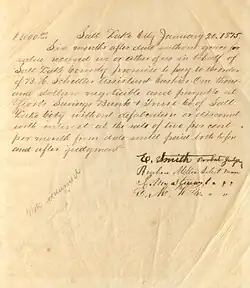 $1000.00 Salt Lake City January 20. 1875.
Six months after date without grace for
value received we or either of us in behalf of
Salt Lake County promise to pay to the order
of B. H. Schettler Assistant Cashier One thous-
and dollars negotiable and payable at
Zion's Savings Bank & Trust Co of Salt
Lake City without defalcation or discount
with interest at the rate of two per cent
per month from date until paid both before
and after judgment.
E. Smith Probate Judge
Select man
Note renewed